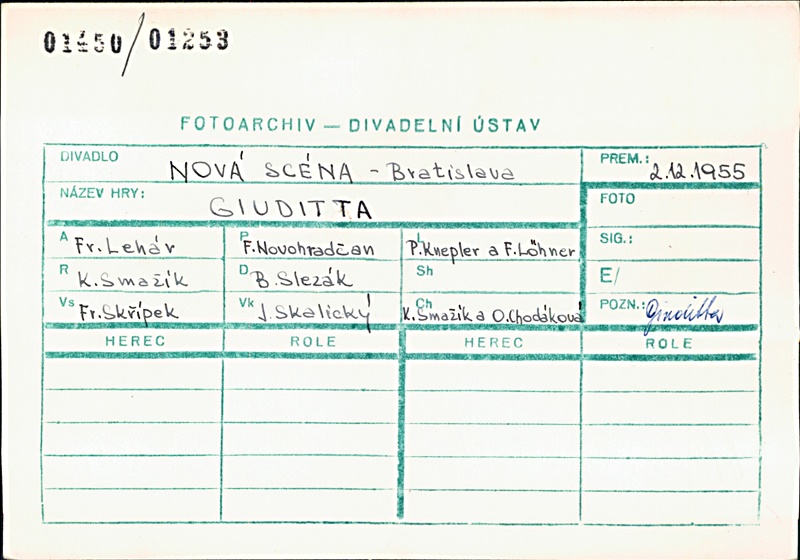 01450/01253
FOTOARCHIV — DIVADELNÍ ÚSTAV
DIVADLO NOVÁ SCÉNA - Bratislava PREM.: 2.12.1955
NÁZEV HRY: GIUDITTA FOTO
A Fr. Lehár P F. Novohradčan L P. Knepler a F. Löhner SIG.:
R K. Smažík D B. Slezák Sh E/
Vs Fr. Skřípek Vk J. Skalický Ch K. Smažík a O. Chodáková POZN.: Giuditta
HEREC ROLE HEREC ROLE